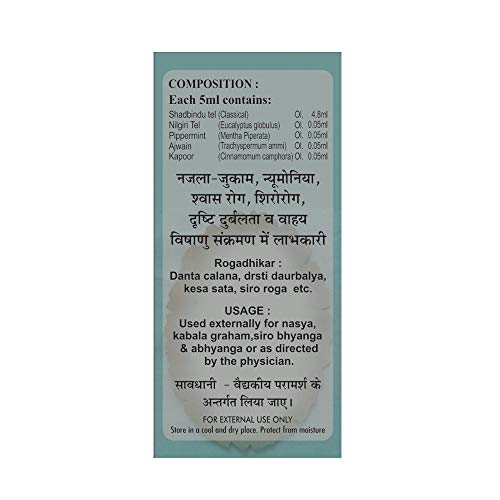 COMPOSITION :
Each 5ml contains:
Shadbindu tel (Classical) Ol. 4.8ml
Nilgiri Tel (Eucalyptus globulus) Ol. 0.05ml
Pippermint (Mentha Piperata) Ol. 0.05ml
Ajwain (Trachyspermum ammi) Ol. 0.05ml
Kapoor (Cinnamomum camphora) Ol. 0.05ml
नजला-जुकाम, न्यूमोनिया,
श्वास रोग, शिरोरोग,
दृष्टि दुर्बलता व वाहय
विषाणु संक्रमण में लाभकारी
Rogadhikar :
Danta calana, drsti daurbalya,
kesa sata, siro roga etc.
USAGE :
Used externally for nasya,
kabala graham,siro bhyanga
& abhyanga or as directed
by the physician.
सावधानी - वैद्यकीय परामर्श के
अन्तर्गत लिया जाए।
FOR EXTERNAL USE ONLY
Store in a cool and dry place. Protect from moisture